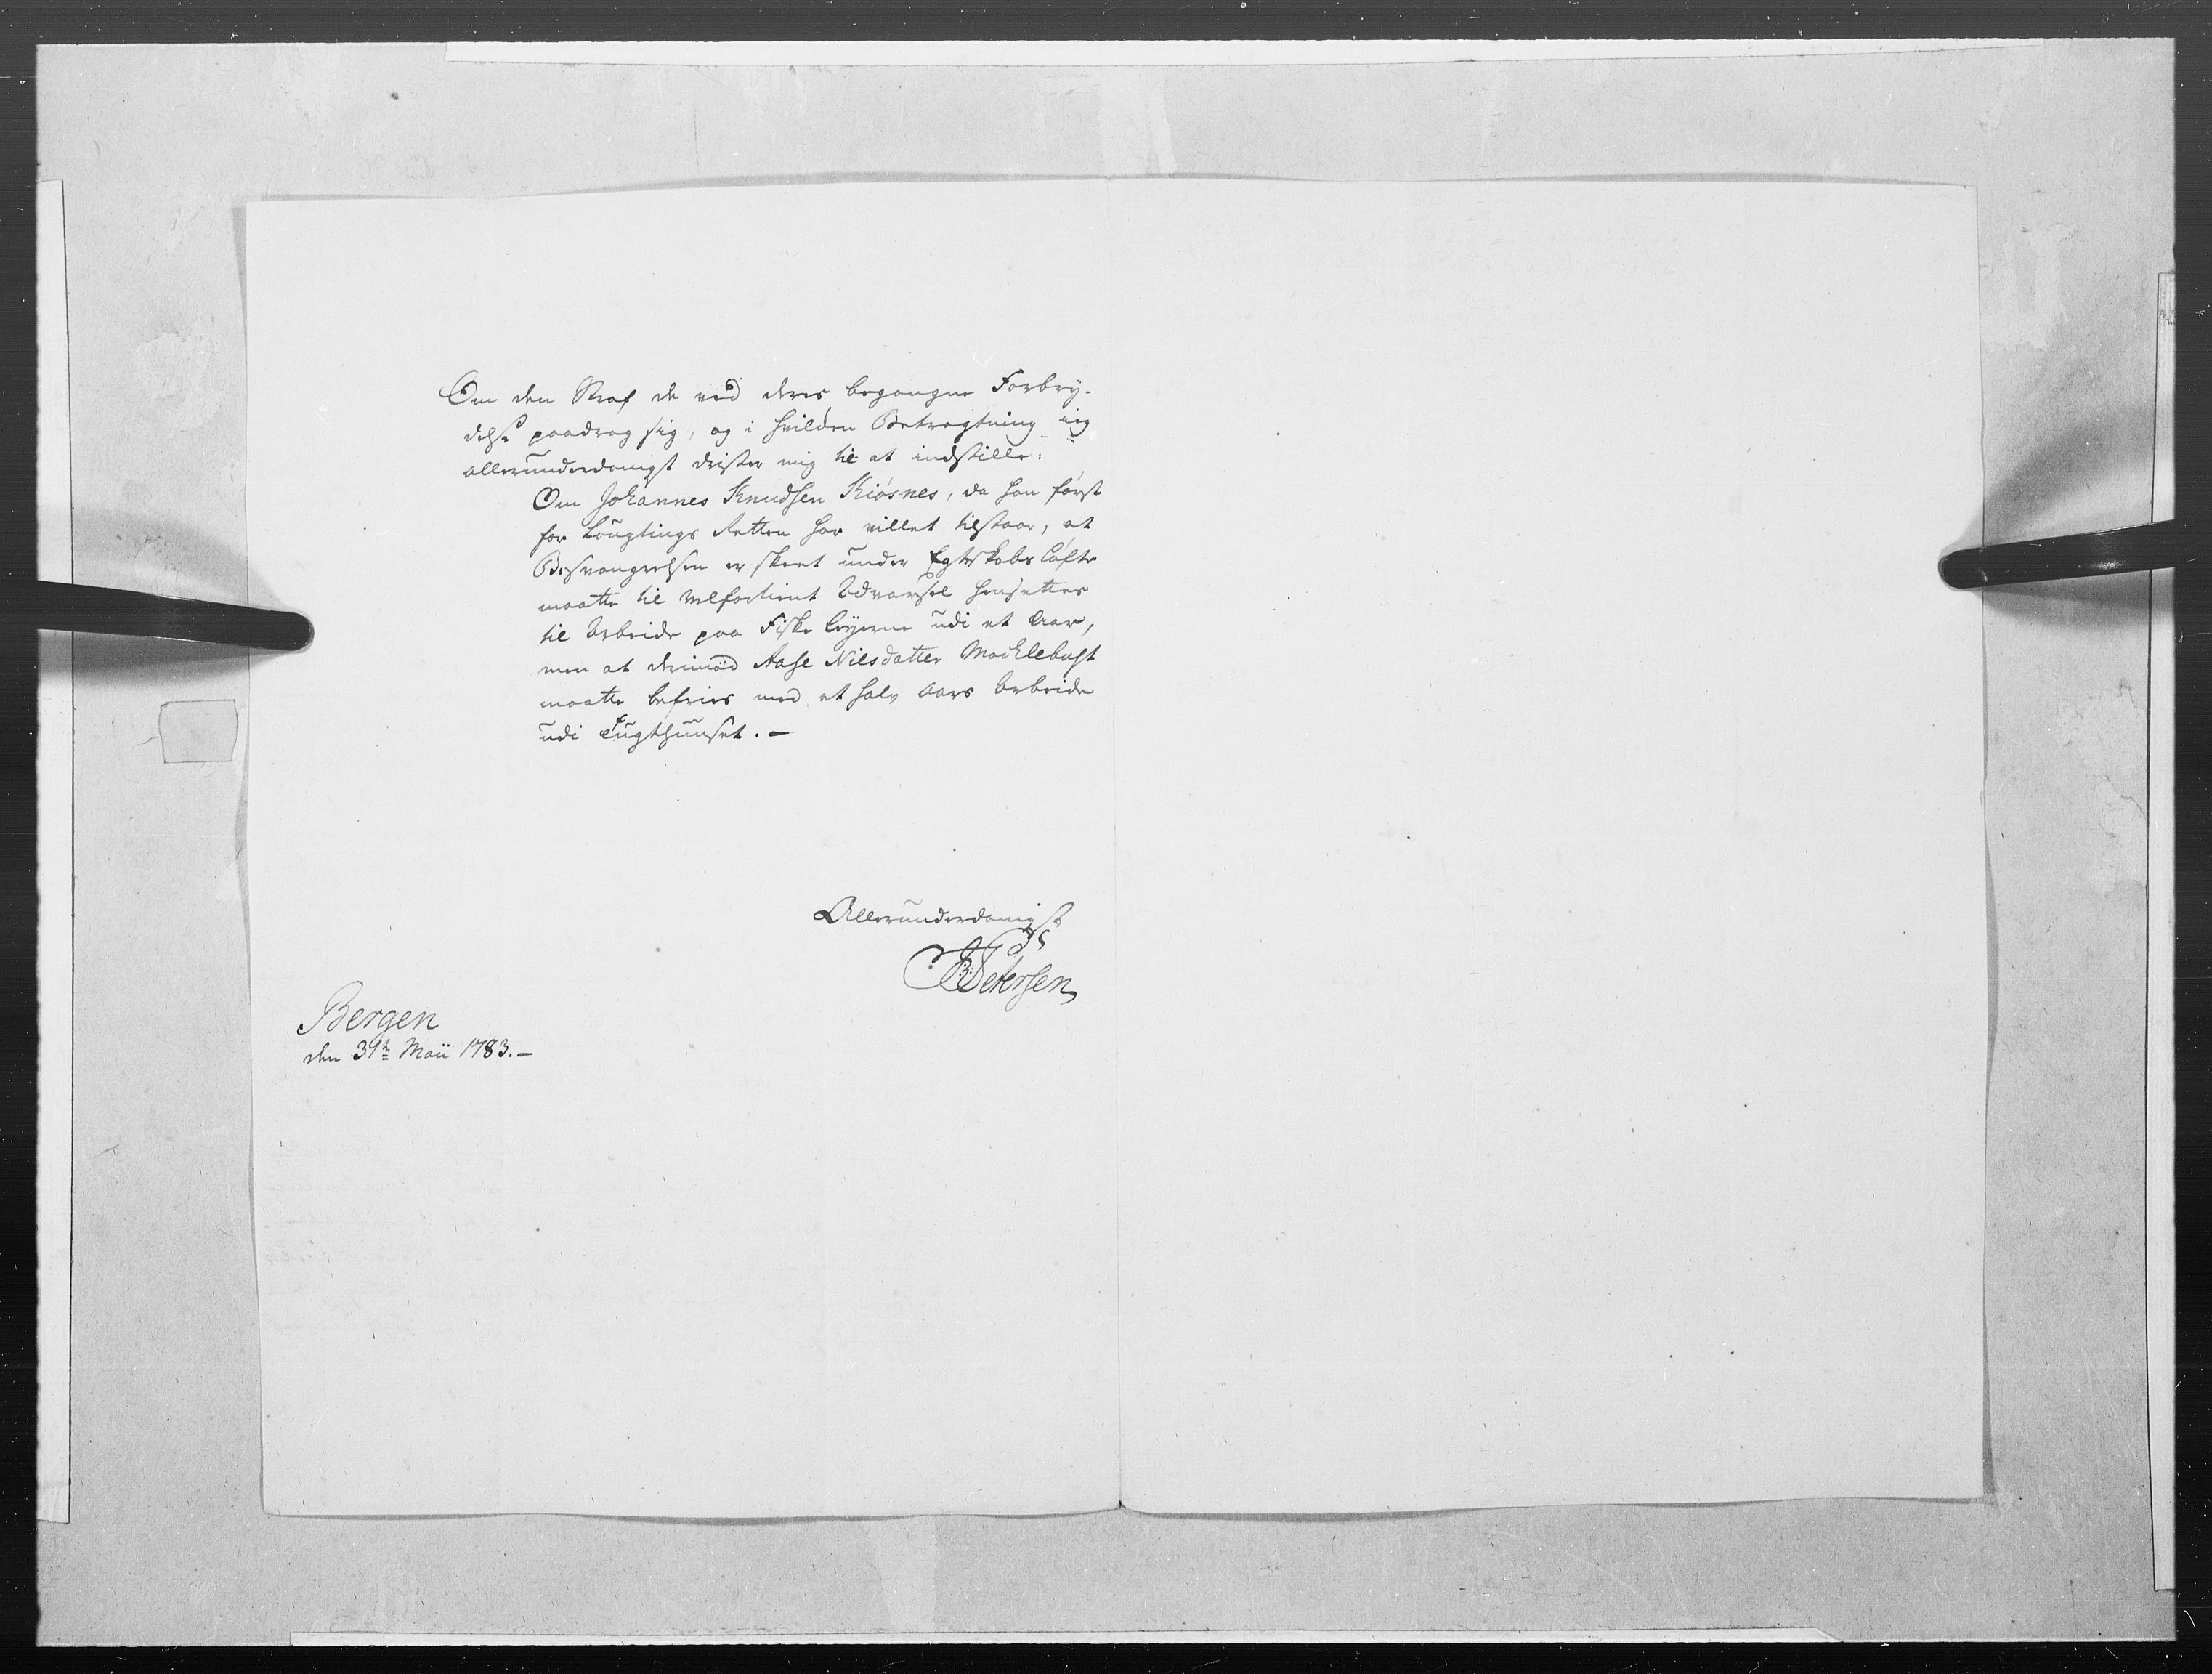 Om den Straf de ved deres begangne Forbry-
delse paadrog sig, og i hvilden Betragtning ieg
allerunderdanigst drister mig til at indstille:
Om Johannes Knudsen Kiösnes, da han först
for Laugtings Retten har villet tilstaae, at
Besvangrelsen er skeet under Egteskabs Löfte
maatte til velfortient Advarsel hensættes
til Arbeide paa Fiske Leyerne udi et Aar,
men at derimod Aase Nilsdatter Mochlebust
maatte befries med et halv Aars Arbeide
udi Tugthuuset. -
Allerunderdanigst
Petersen
Bergen
den 31te Maii 1783. -